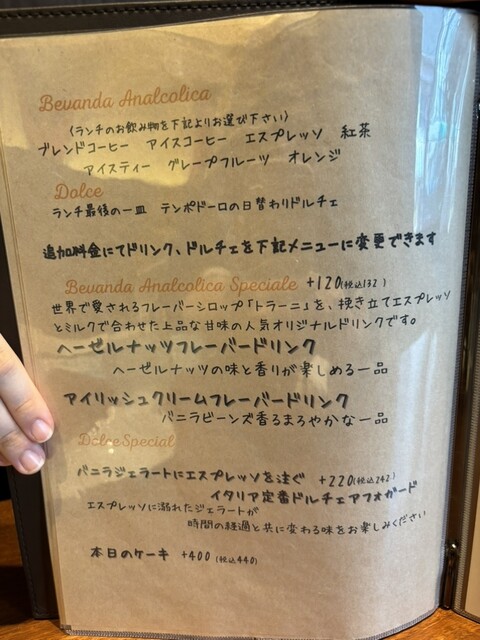 Bevanda Analcolica
(ランチのお飲み物を下記よりお選び下さい)
ブレンドコーヒー アイスコーヒー エスプレッソ 紅茶
アイスティー グレープフルーツ オレンジ
Dolce
ランチ最後の一皿 テンポドーロの日替わりドルチェ
追加料金にてドリンク、ドルチェを下記メニューに変更できます
Bevanda Analcolica Speciale +120(税込132)
世界で愛されるフレーバーシロップ「トラーニ」を、挽き立てエスプレッソ
とミルクで合わせた上品な甘味の人気オリジナルドリンクです。
ヘーゼルナッツフレーバードリンク
ヘーゼルナッツの味と香りが楽しめる一品
アイリッシュクリームフレーバードリンク
バニラビーンズ香るまろやかな一品
Dolce Special
バニラジェラートにエスプレッソを注ぐ +220(税込242)
イタリア定番ドルチェアフォガード
エスプレッソに溺れたジェラートが
時間の経過と共に変わる味をお楽しみください
本日のケーキ +400 (税込440)